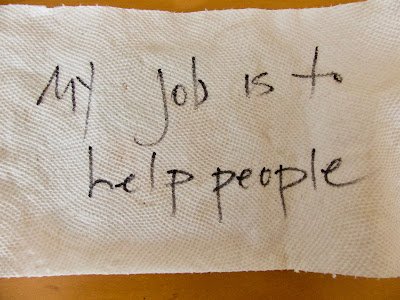 My job is to
help people